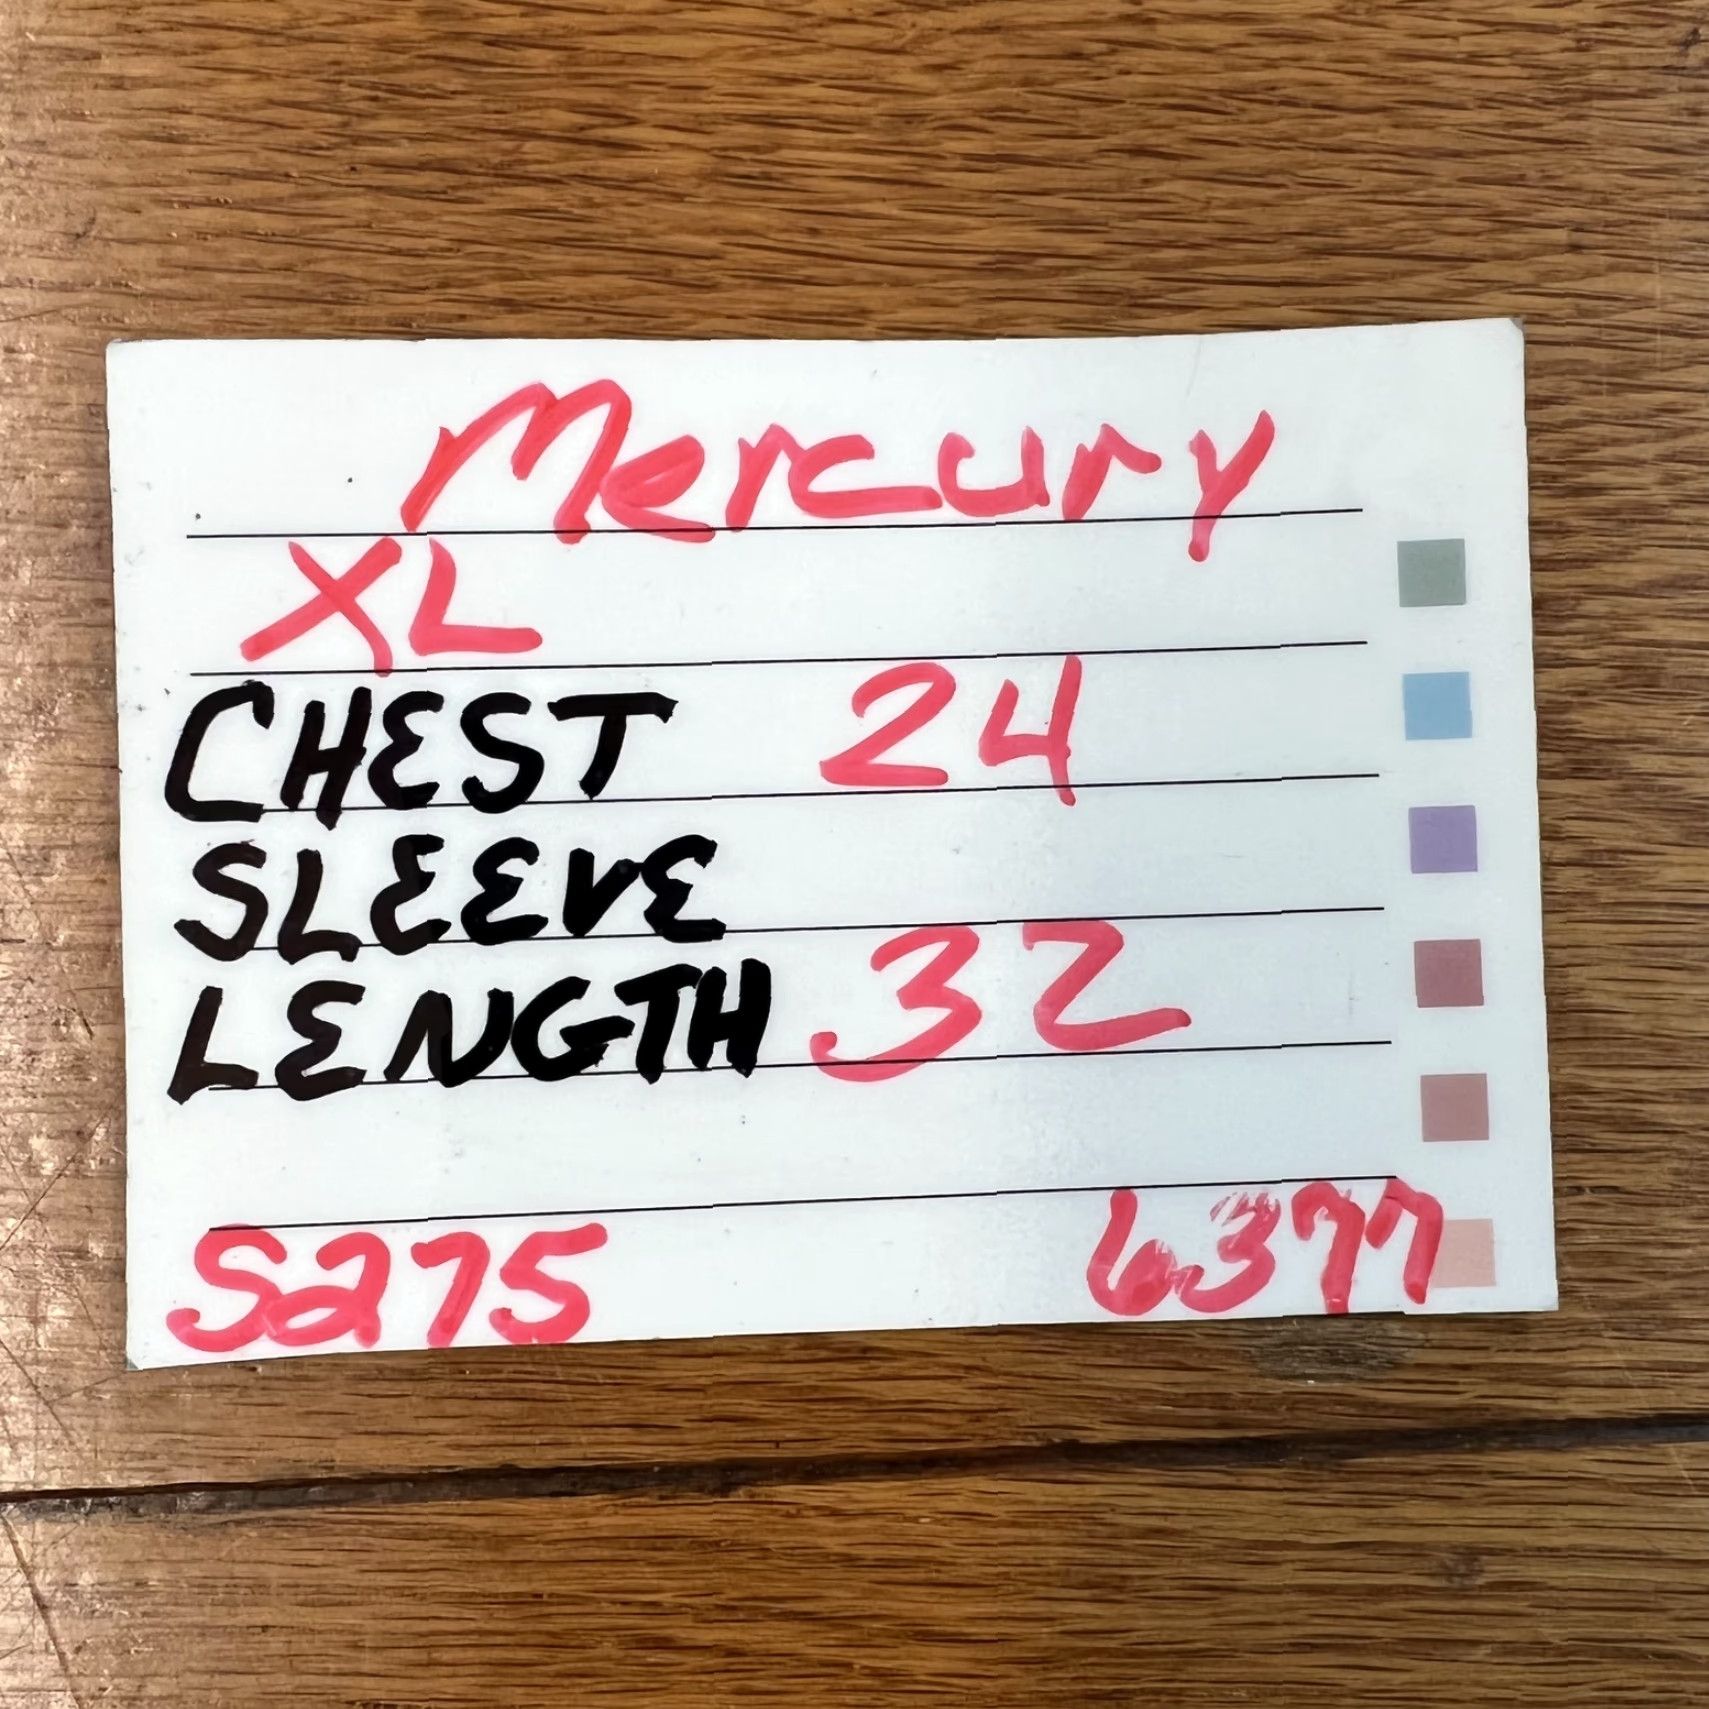 Mercury
XL
CHEST 24
SLEEVE
LENGTH 32
S275 6377